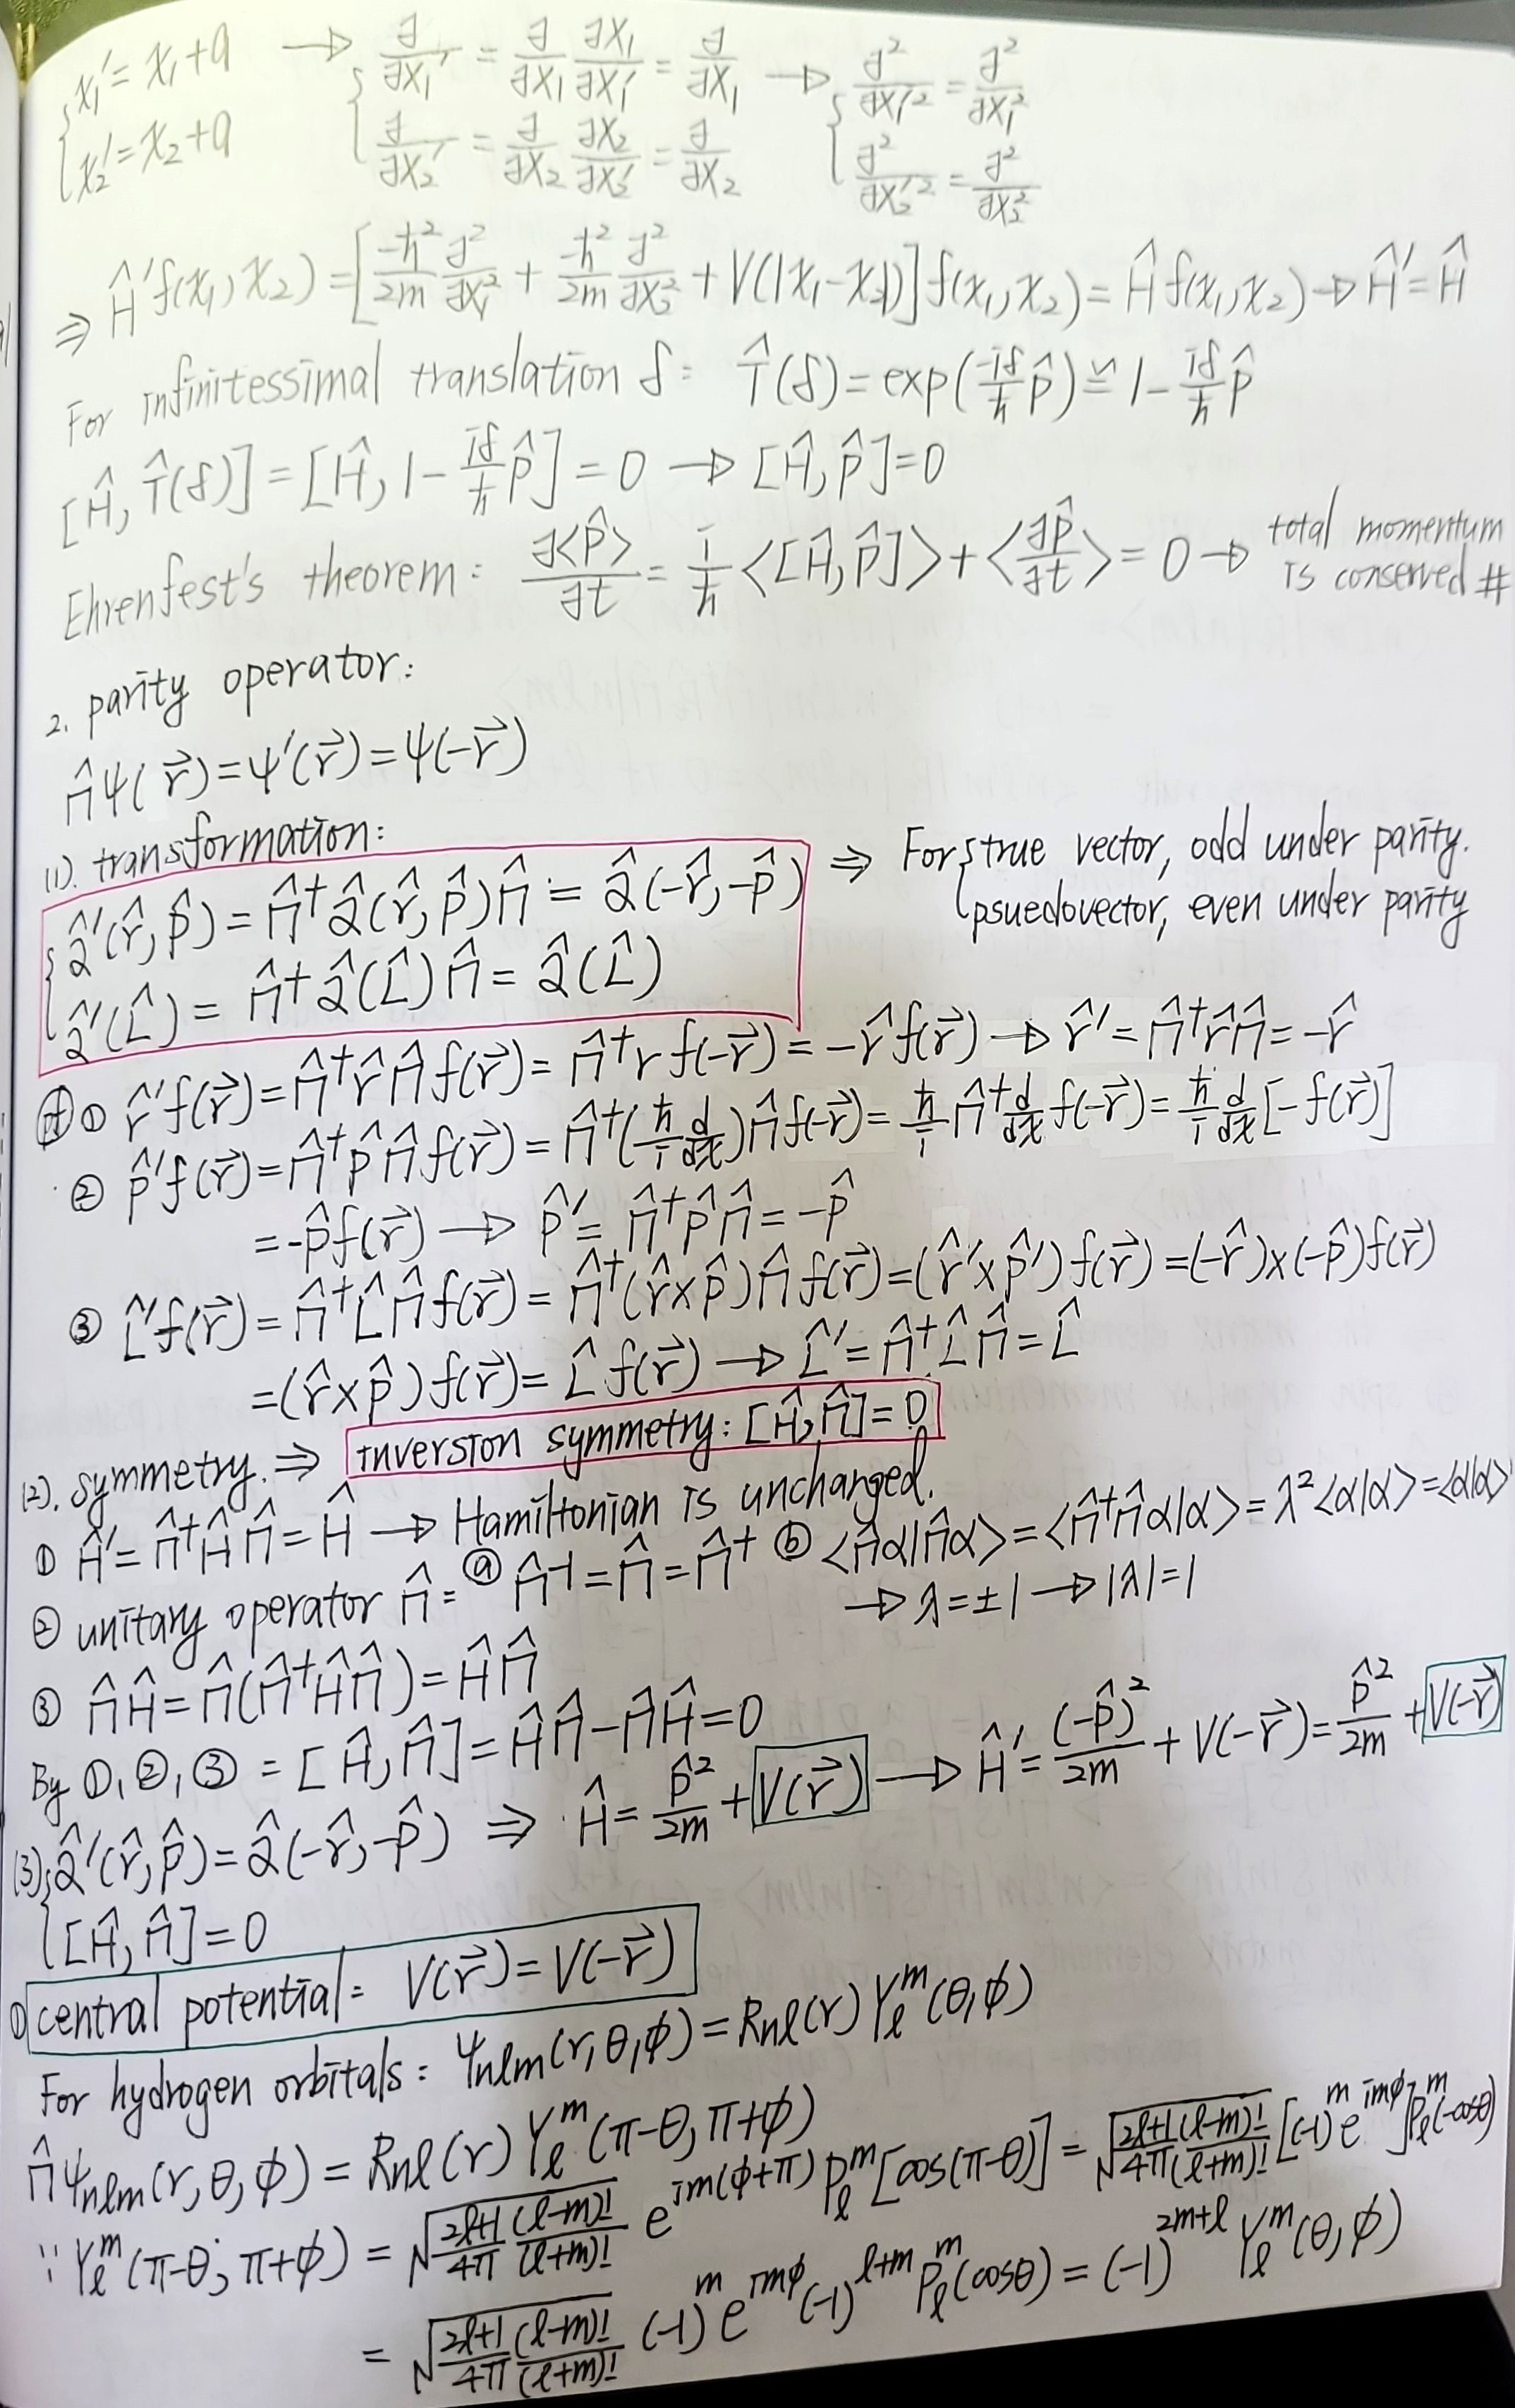 {x₁'=x₁+a → {∂/∂x₁' = ∂/∂x₁ ∂x₁/∂x₁' = ∂/∂x₁ → {∂²/∂x₁'² = ∂²/∂x₁²
{x₂'=x₂+a {∂/∂x₂' = ∂/∂x₂ ∂x₂/∂x₂' = ∂/∂x₂ {∂²/∂x₂'² = ∂²/∂x₂²
⇒ Ĥ'f(x₁,x₂) = [-ħ²/2m ∂²/∂x₁² + -ħ²/2m ∂²/∂x₂² + V(|x₁-x₂|)] f(x₁,x₂) = Ĥf(x₁,x₂) → Ĥ'=Ĥ
For infinitessimal translation δ: T̂(δ) = exp(-iδ/ħ p̂) ≃ 1 - iδ/ħ p̂
[Ĥ, T̂(δ)] = [Ĥ, 1 - iδ/ħ p̂] = 0 → [Ĥ, p̂] = 0
Ehrenfest's theorem: ∂<p̂>/∂t = i/ħ <[Ĥ, p̂]> + <∂p̂/∂t> = 0 → total momentum is conserved #
2. parity operator:
Π̂ψ(r⃗) = ψ'(r⃗) = ψ(-r⃗)
(1). transformation:
{Q̂'(r̂, p̂) = Π̂†Q̂(r̂, p̂)Π̂ = Q̂(-r̂, -p̂) ⇒ For {true vector, odd under parity.
{Q̂'(L̂) = Π̂†Q̂(L̂)Π̂ = Q̂(L̂) {psuedovector, even under parity
pf ① r̂'f(r⃗) = Π̂†r̂Π̂f(r⃗) = Π̂†r f(-r⃗) = -r̂f(r⃗) → r̂' = Π̂†r̂Π̂ = -r̂
② p̂'f(r⃗) = Π̂†p̂Π̂f(r⃗) = Π̂†(ħ/i d/dx)Π̂f(r⃗) = ħ/i Π̂† d/dx f(-r⃗) = ħ/i d/dx [-f(r⃗)]
= -p̂f(r⃗) → p̂' = Π̂†p̂Π̂ = -p̂
③ L̂'f(r⃗) = Π̂†L̂Π̂f(r⃗) = Π̂†(r̂×p̂)Π̂f(r⃗) = (r̂'×p̂')f(r⃗) = (-r̂)×(-p̂)f(r⃗)
= (r̂×p̂)f(r⃗) = L̂f(r⃗) → L̂' = Π̂†L̂Π̂ = L̂
(2). symmetry. ⇒ inversion symmetry: [Ĥ, Π̂] = 0
① Ĥ' = Π̂†ĤΠ̂ = Ĥ → Hamiltonian is unchanged.
② unitary operator Π̂: ⓐ Π̂⁻¹ = Π̂ = Π̂† ⓑ <Π̂α|Π̂α> = <Π̂†Π̂α|α> = λ²<α|α> = <α|α>
→ λ = ±1 → |λ| = 1
③ Π̂Ĥ = Π̂(Π̂†ĤΠ̂) = ĤΠ̂
By ①, ②, ③: [Ĥ, Π̂] = ĤΠ̂ - Π̂Ĥ = 0
(3). {Q̂'(r̂, p̂) = Q̂(-r̂, -p̂) ⇒ Ĥ = p̂²/2m + V(r⃗) → Ĥ' = (-p̂)²/2m + V(-r⃗) = p̂²/2m + V(-r⃗)
{[Ĥ, Π̂] = 0
① central potential: V(r⃗) = V(-r⃗)
For hydrogen orbitals: ψnlm(r,θ,ϕ) = Rnl(r) Yₗᵐ(θ,ϕ)
Π̂ψnlm(r,θ,ϕ) = Rnl(r) Yₗᵐ(π-θ, π+ϕ)
∵ Yₗᵐ(π-θ, π+ϕ) = √((2l+1)/4π (l-m)!/(l+m)!) e^{im(ϕ+π)} Pₗᵐ[cos(π-θ)] = √((2l+1)/4π (l-m)!/(l+m)!) [(-1)ᵐ e^{imϕ}] Pₗᵐ(-cosθ)
= √((2l+1)/4π (l-m)!/(l+m)!) (-1)ᵐ e^{imϕ} (-1)^{l+m} Pₗᵐ(cosθ) = (-1)^{2m+l} Yₗᵐ(θ,ϕ)